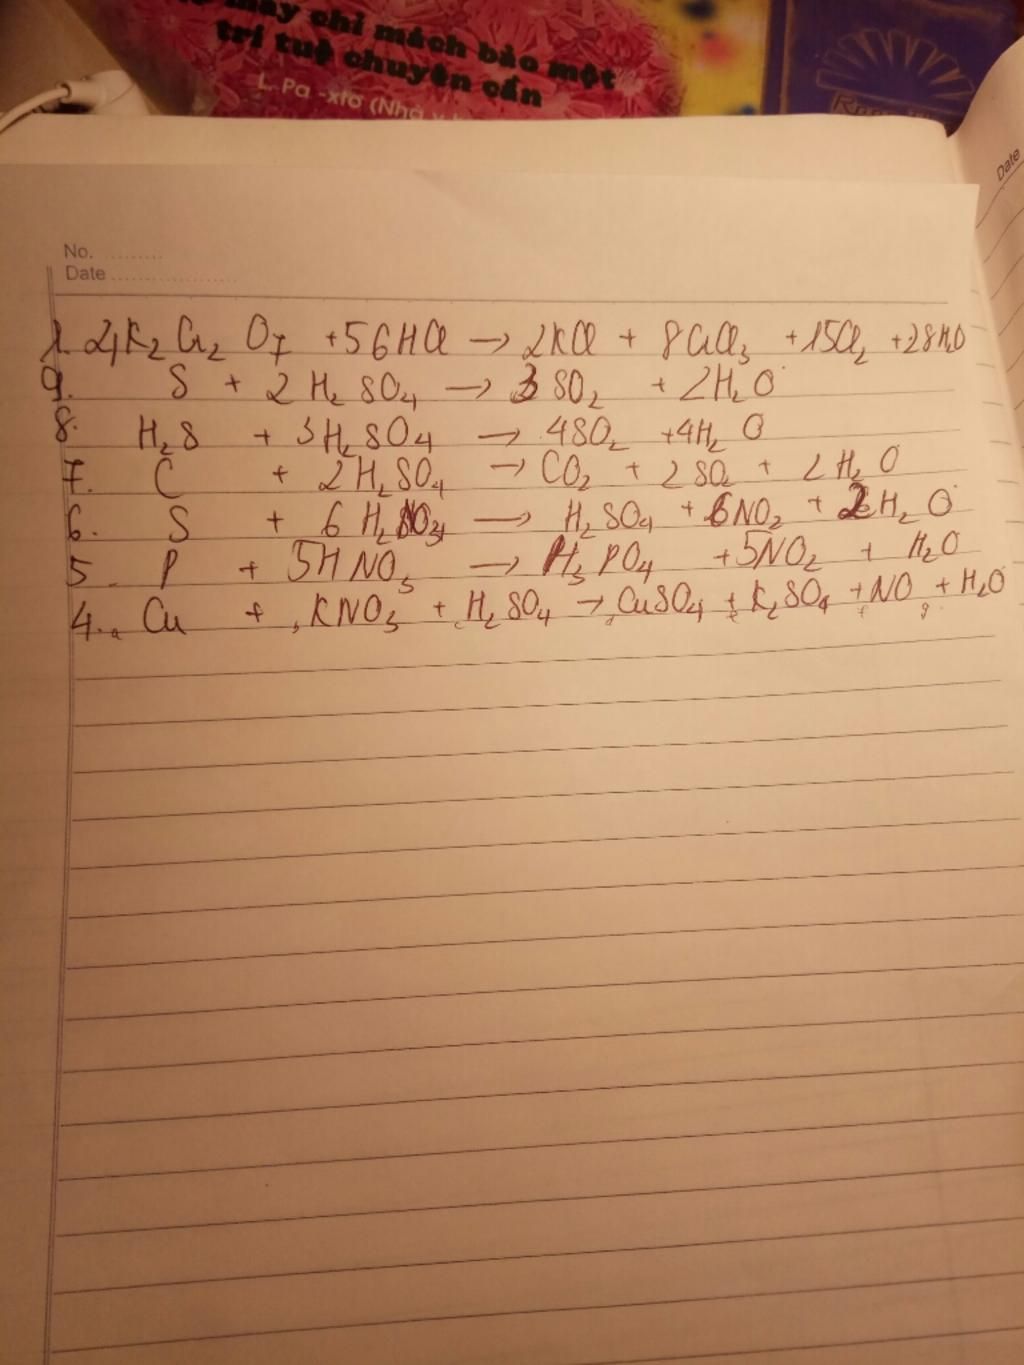 máy chỉ mách bảo một
trí tuệ chuyên cần
L. Pa -xtơ (Nhà
Date
No. .........
Date ..................
1. 4K₂Cr₂O₇ +56HCl → 2KCl + 8CrCl₃ +15Cl₂ +28H₂O
9. S + 2H₂SO₄ → 3SO₂ + 2H₂O
8. H₂S + 3H₂SO₄ → 4SO₂ +4H₂O
7. C + 2H₂SO₄ → CO₂ + 2SO₂ + 2H₂O
6. S + 6 → H₂SO₄ + 6NO₂ + 2H₂O
5. P + 5HNO₃ → H₃PO₄ +5NO₂ + H₂O
4. Cu + KNO₃ + H₂SO₄ → CuSO₄ + K₂SO₄ + NO + H₂O